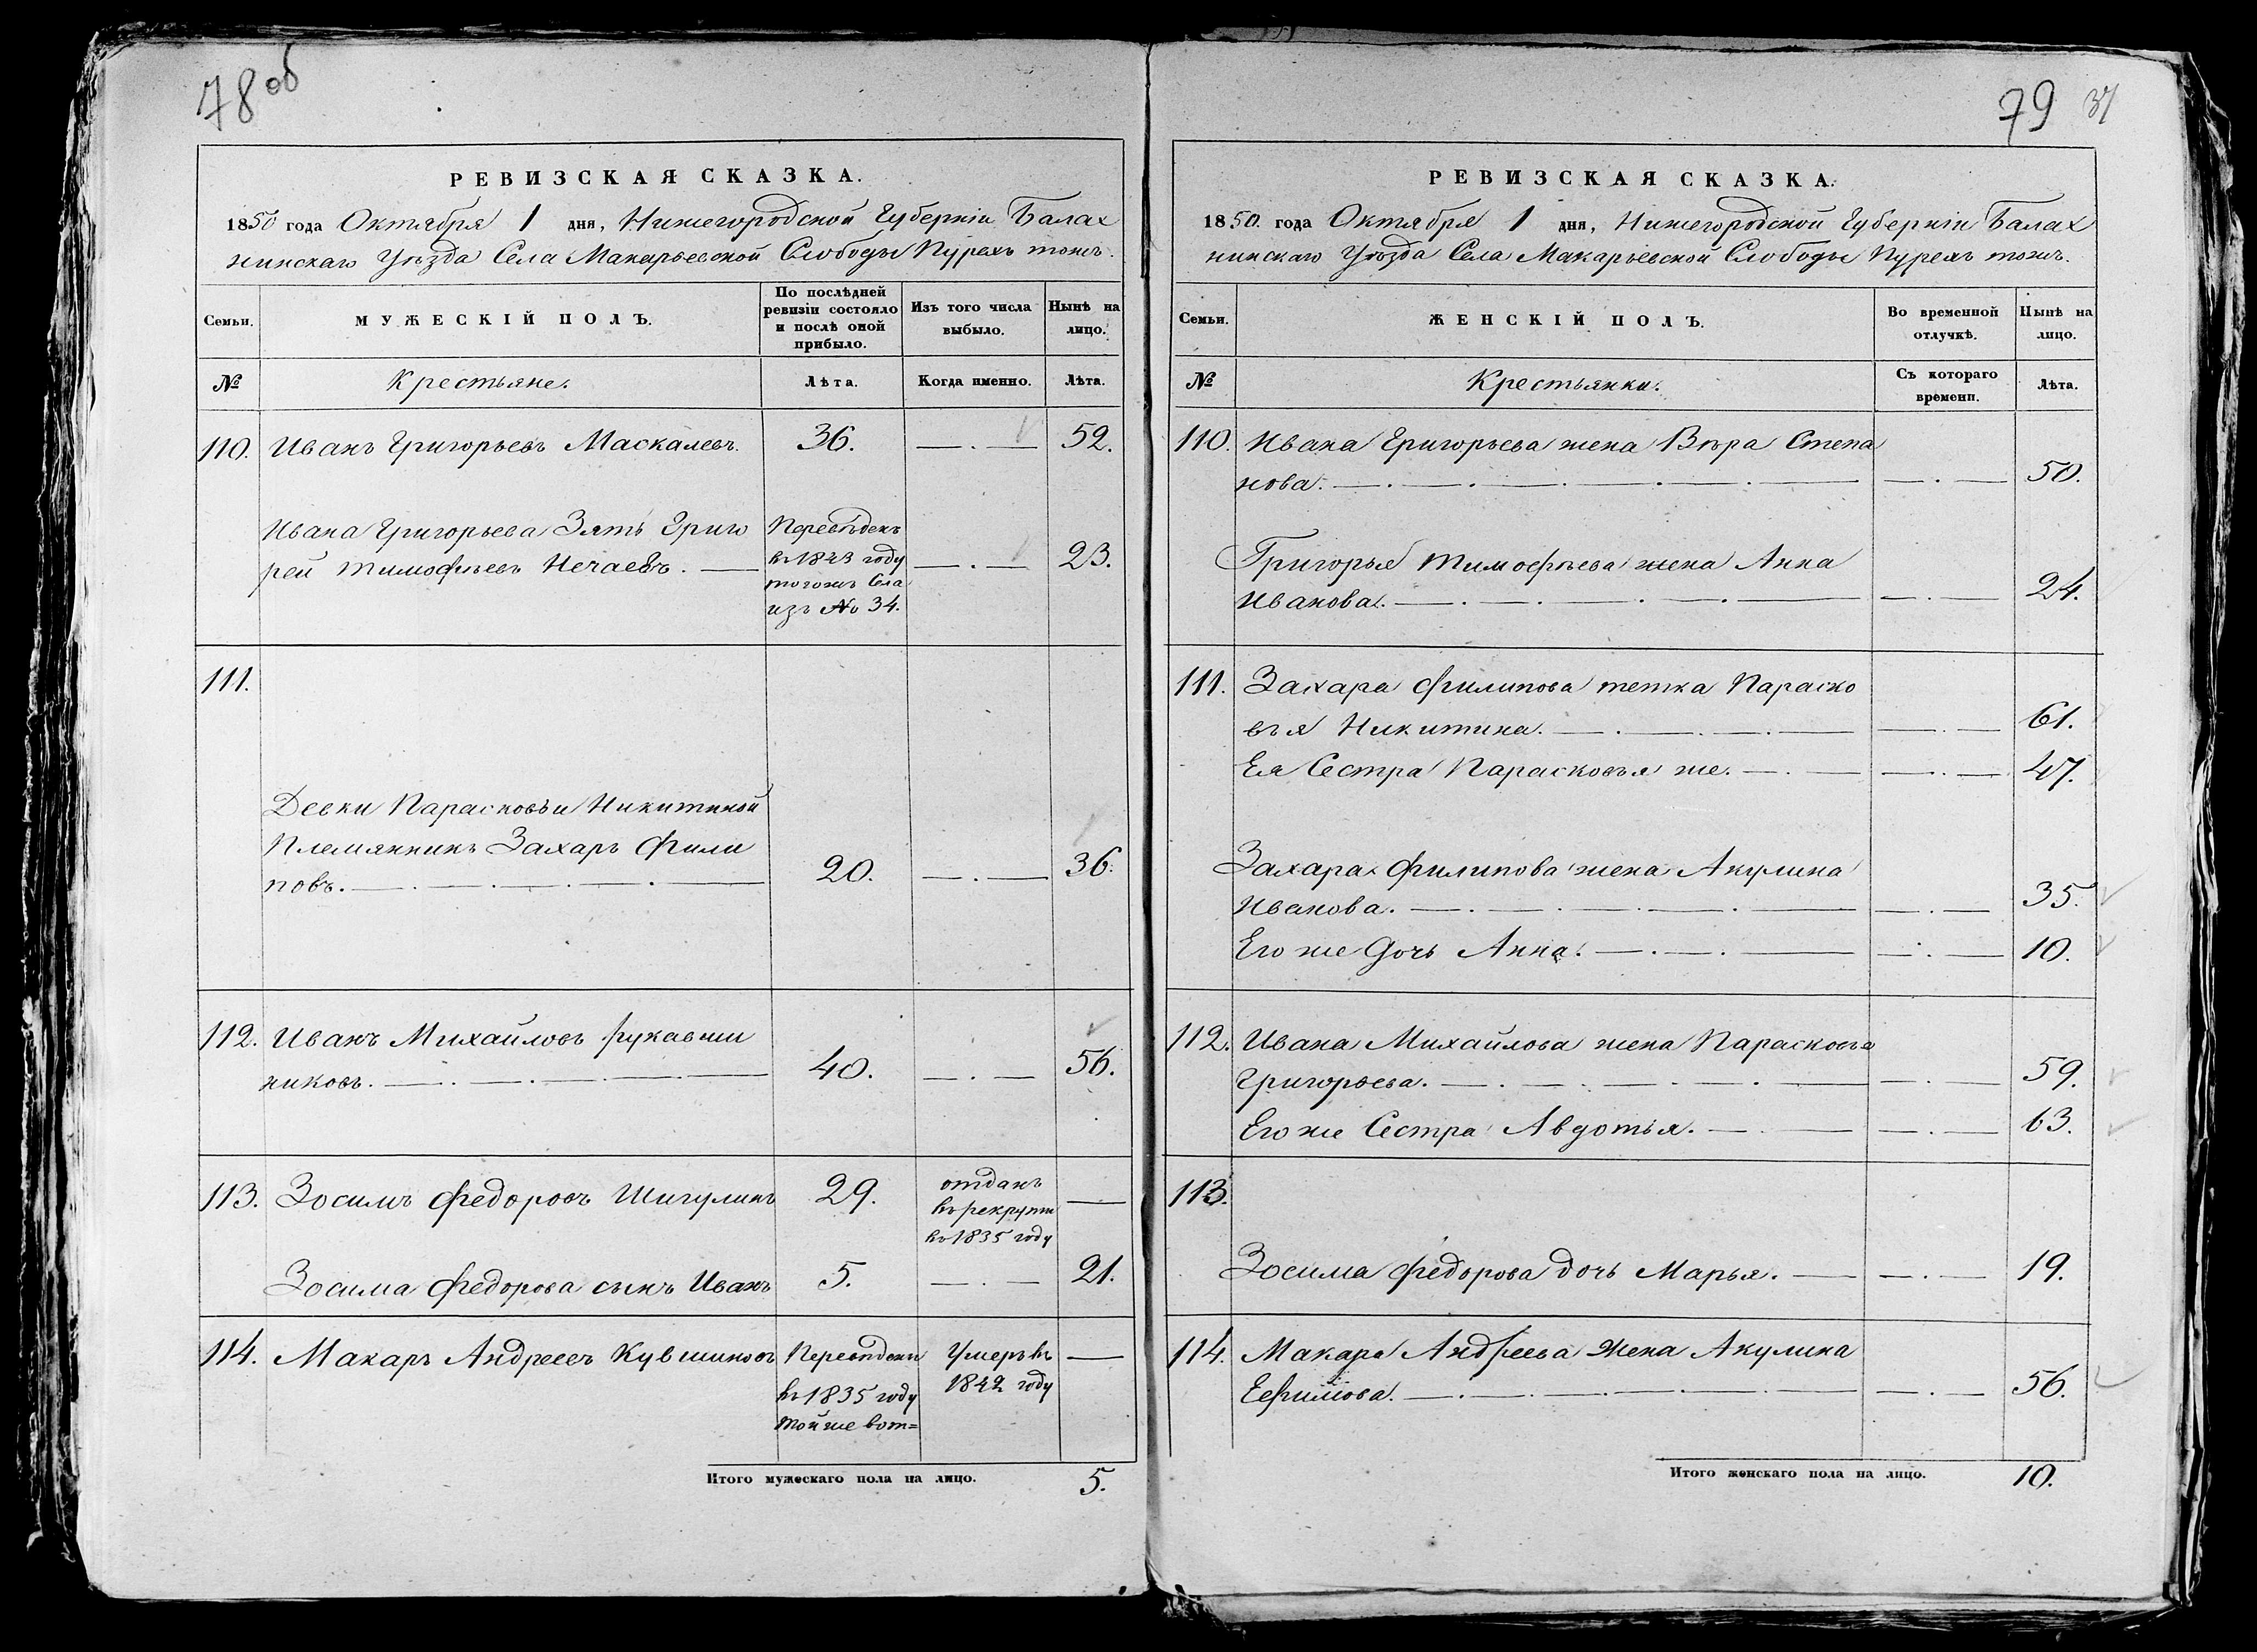 78 об
РЕВИЗСКАЯ СКАЗКА.
1850 года Октября 1 дня, Нижегородской Губерніи Балах
нинскаго Уѣзда Села Макарьевской Слободы Пурехъ тожъ.
Семьи.
МУЖЕСКІЙ ПОЛЪ.
По послѣдней
ревизіи состояло
и послѣ оной
прибыло.
Изъ того числа
выбыло.
Нынѣ на
лицо.
№
Крестьяне.
Лѣта.
Когда именно.
Лѣта.
110. Иванъ Григорьевъ Маскалевъ. 36. — . — 52.
Ивана Григорьева Зять Григо
рей Тимофѣевъ Нечаевъ. —
Переведенъ
въ 1843 году
тогожъ Села
изъ № 34.
— . — 23.
111.
Девки Парасковьи Никитиной
Племянникъ Захаръ Фили
повъ. — 20. — . — 36.
112. Иванъ Михайловъ Рукавиш
никовъ. — 40. — . — 56.
113. Зосимъ Федоровъ Шигулинъ 29.
отданъ
въ рекруты
въ 1835 году
—
Зосима Федорова сынъ Иванъ 5. — . — 21.
114. Макаръ Андреевъ Кувшиновъ
Переведенъ
въ 1835 году
той же вот=
Умеръ въ
1842 году
—
Итого мужескаго пола на лицо. 5.
79 37
РЕВИЗСКАЯ СКАЗКА.
1850. года Октября 1 дня, Нижегородской Губерніи Балах
нинскаго Уѣзда Села Макарьевской Слободы Пурехъ тожъ.
Семьи.
ЖЕНСКІЙ ПОЛЪ.
Во временной
отлучкѣ.
Нынѣ на
лицо.
№
Крестьянки.
Съ котораго
времени.
Лѣта.
110. Ивана Григорьева жена Вѣра Степа
нова. — . — 50.
Григорья Тимофѣева жена Анна
Иванова. — . — 24.
111. Захара Филипова тетка Параско
вья Никитина. — . — 61.
Ея Сестра Парасковья же. — . — 47.
Захара Филипова жена Акулина
Иванова. — . — 35.
Его же дочь Анна. — . — 10.
112. Ивана Михайлова жена Парасковья
Григорьева. — . — 59.
Его же Сестра Авдотья. — . — 63.
113.
Зосима Федорова дочь Марья. — . — 19.
114. Макара Андреева Жена Акулина
Ефимова. — . — 56.
Итого женскаго пола на лицо. 10.